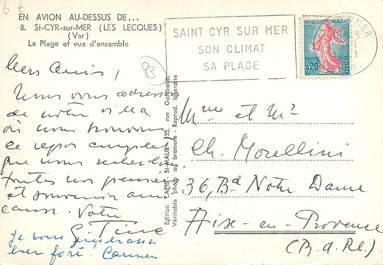 6 €
EN AVION AU-DESSUS DE...
8. St-CYR-sur-MER (LES LECQUES)
(Var)
La Plage et vue d'ensemble
SAINT CYR SUR MER
SON CLIMAT
SA PLACE
0,20
83
Chers Amis,
Nous vous adressons
de notre villa
où nous trouvons
le repos complet
que nous recherchons
toutes nos pensées
et souvenir ami
Votre
je vous embrasse
bien fort Carmen
Mme et Mr
Ch. Morellini
36, Bd Notre Dame
Aix-en-Provence
(B. d. Rh.)